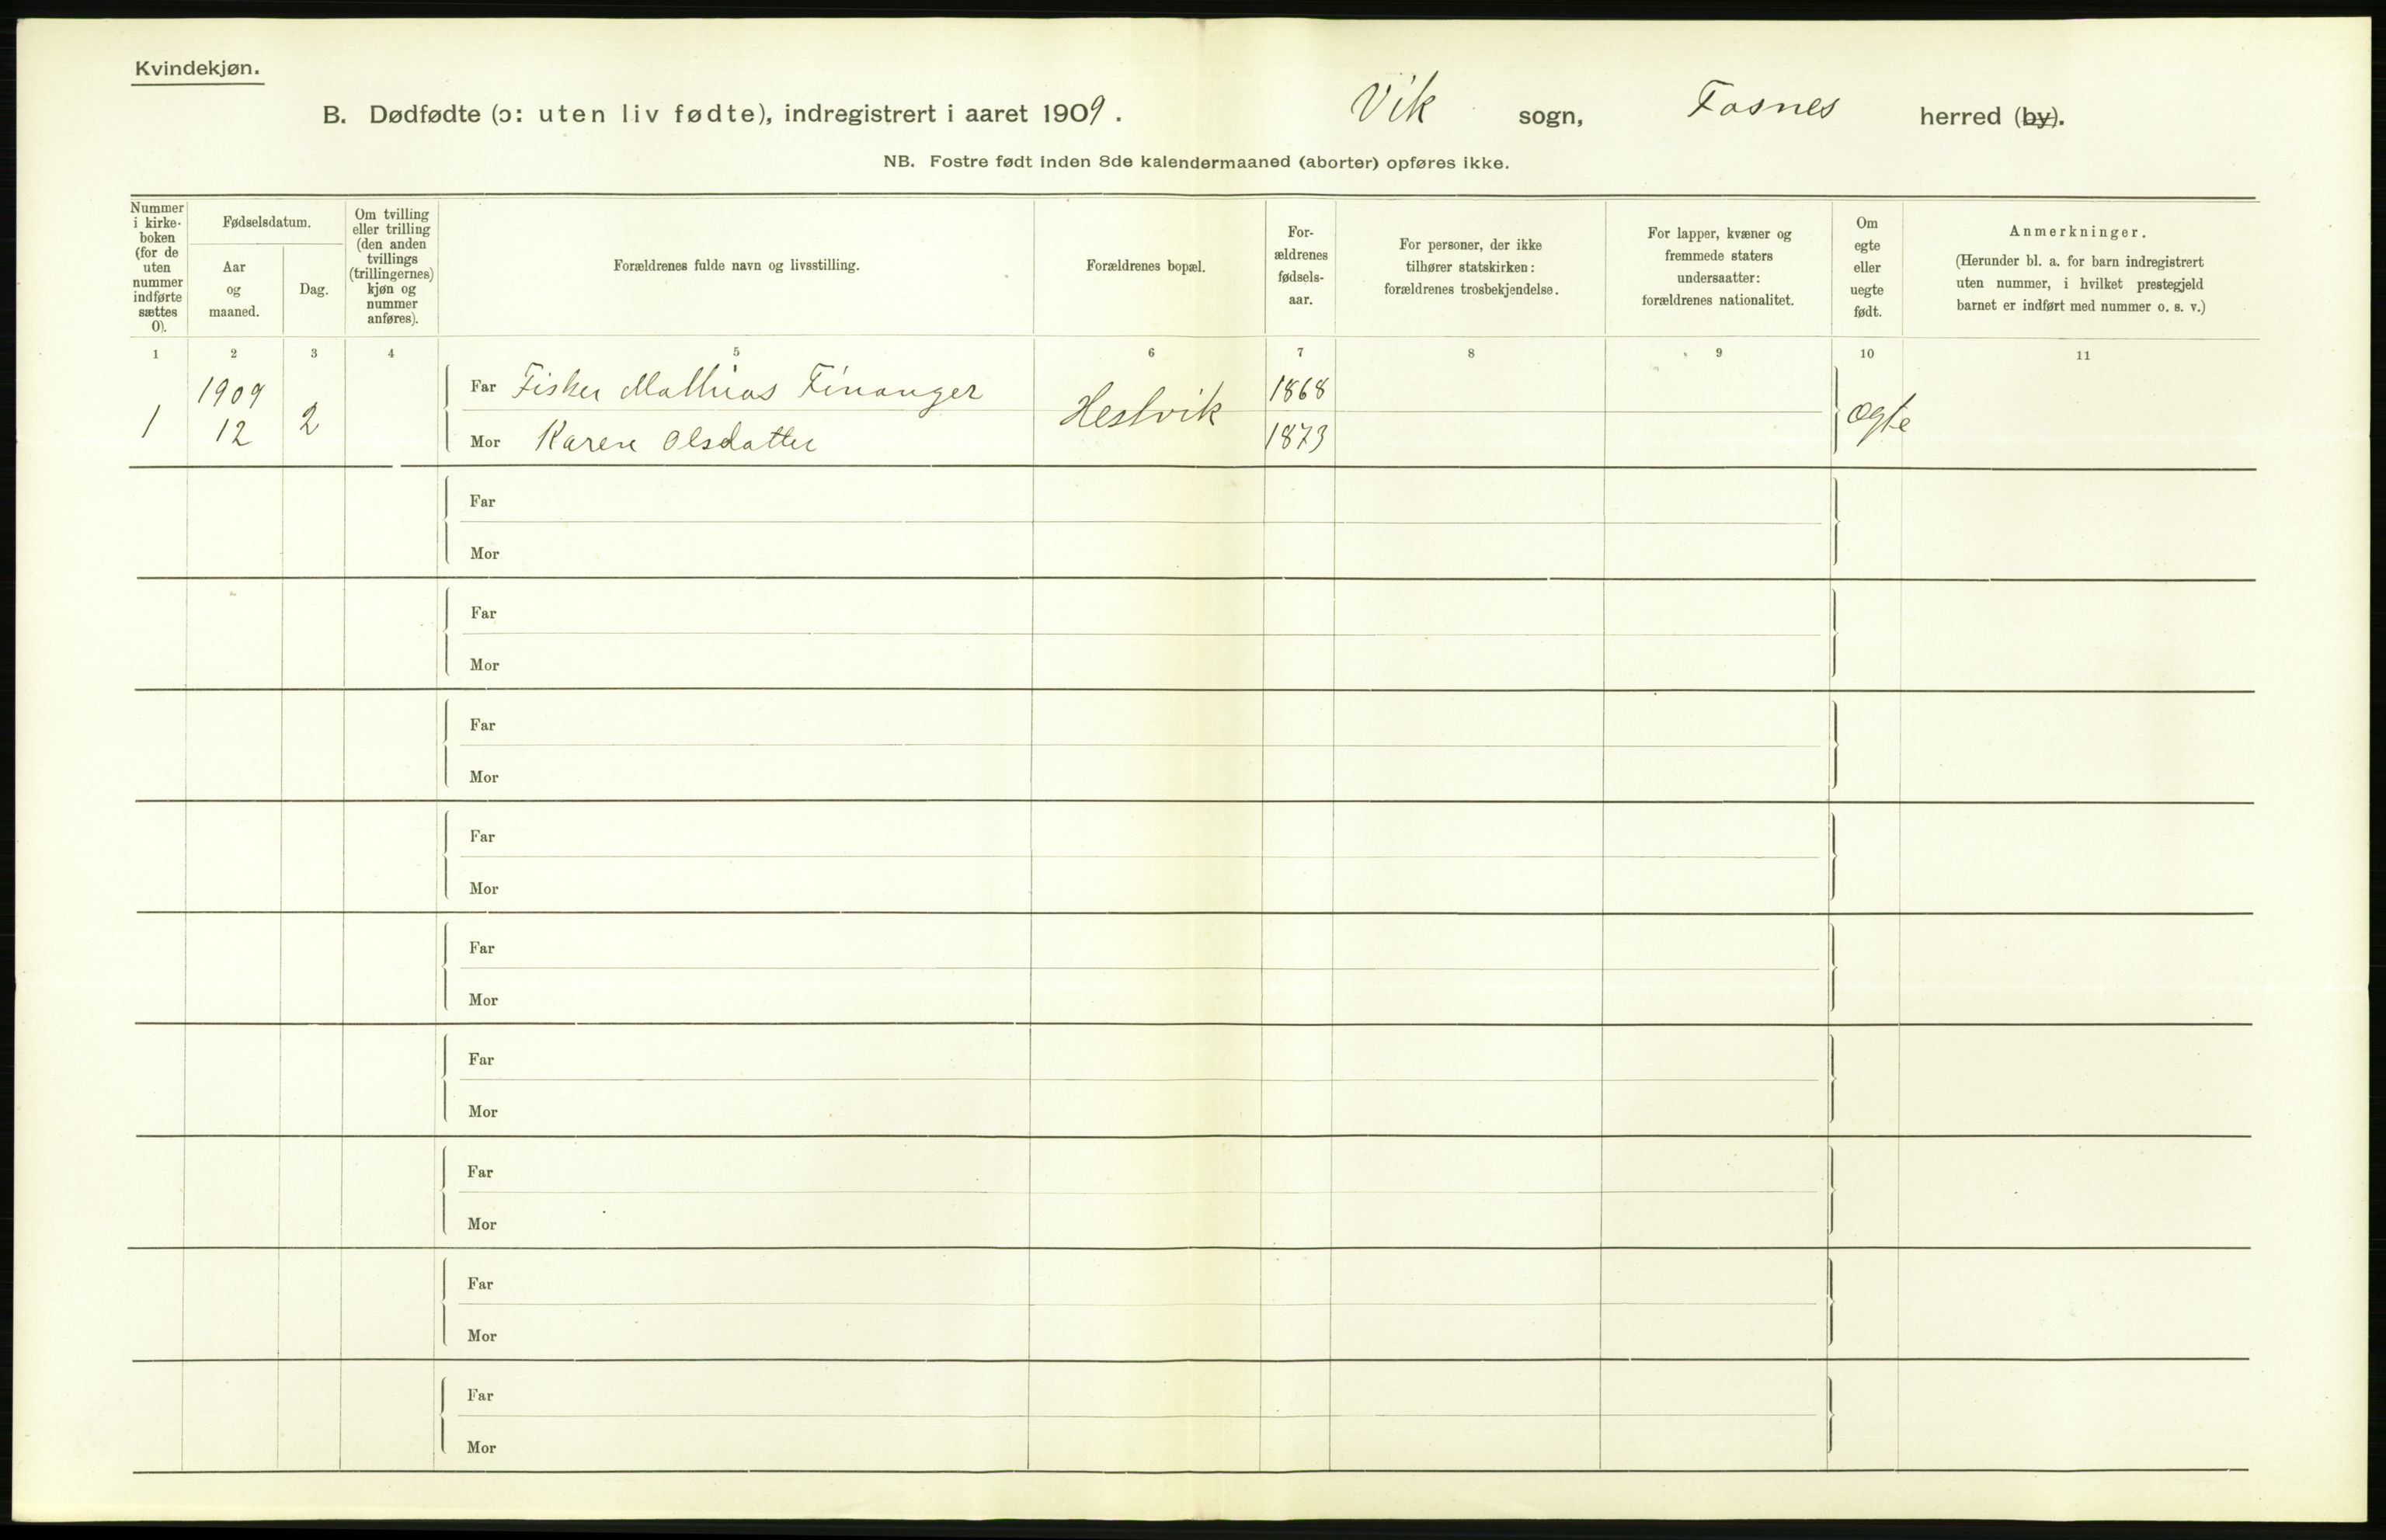 Kvindekjøn.
B. Dødfødte (ɔ: uten liv fødte), indregistrert i aaret 1909. Vik sogn, Fosnes herred (by).
NB. Fostre født inden 8de kalendermaaned (aborter) opføres ikke.
Nummer i kirke-boken (for de uten nummer indførte sættes 0).
Fødselsdatum.
Aar og maaned.
Dag.
Om tvilling eller trilling (den anden tvillings (trillingernes) kjøn og nummer anføres).
Forældrenes fulde navn og livsstilling.
Forældrenes bopæl.
For-ældrenes fødsels-aar.
For personer, der ikke tilhører statskirken: forældrenes trosbekjendelse.
For lapper, kvæner og fremmede staters undersaatter: forældrenes nationalitet.
Om egte eller uegte født.
Anmerkninger.
(Herunder bl. a. for barn indregistrert uten nummer, i hvilket prestegjeld barnet er indført med nummer o. s. v.)
1 2 3 4 5 6 7 8 9 10 11
1909 Far Fisker Mathias Finanger 1868
1 12 2 Hestvik ægte
Mor Karen Olsdatter 1873
Far
Mor
Far
Mor
Far
Mor
Far
Mor
Far
Mor
Far
Mor
Far
Mor
Far
Mor
Far
Mor